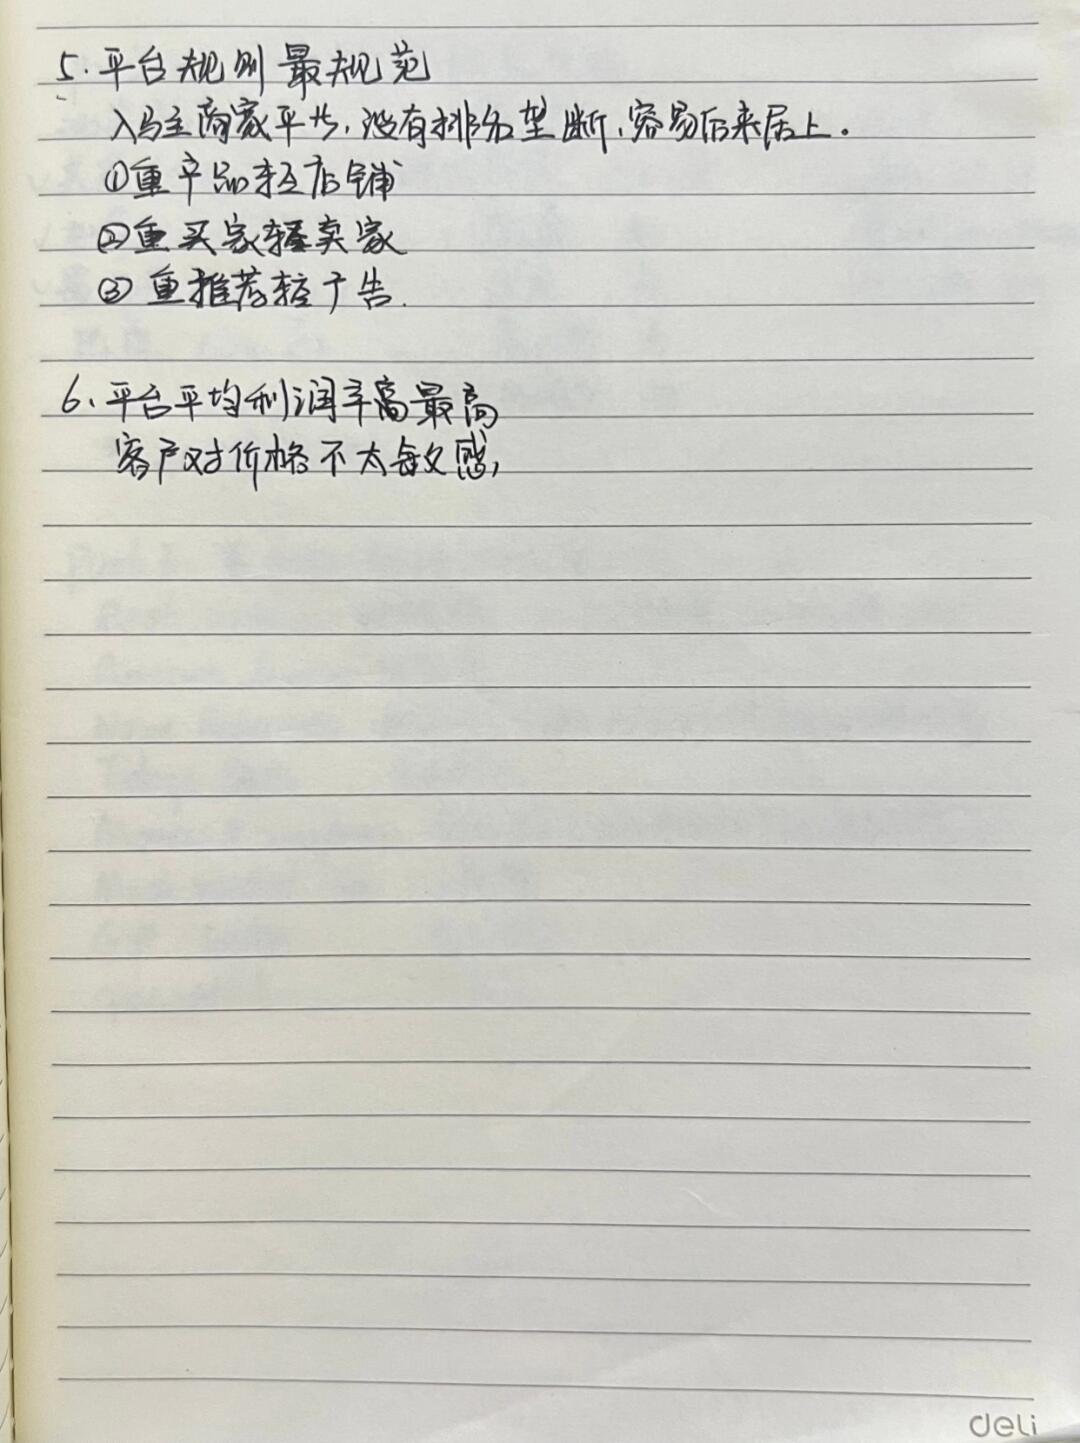 5.平台规则最规范
入驻商家平步,没有排名垄断,容易后来居上。
①重产品轻店铺
②重买家轻卖家
③重推荐轻广告.
6.平台平均利润率高最高
客户对价格不太敏感,
deli